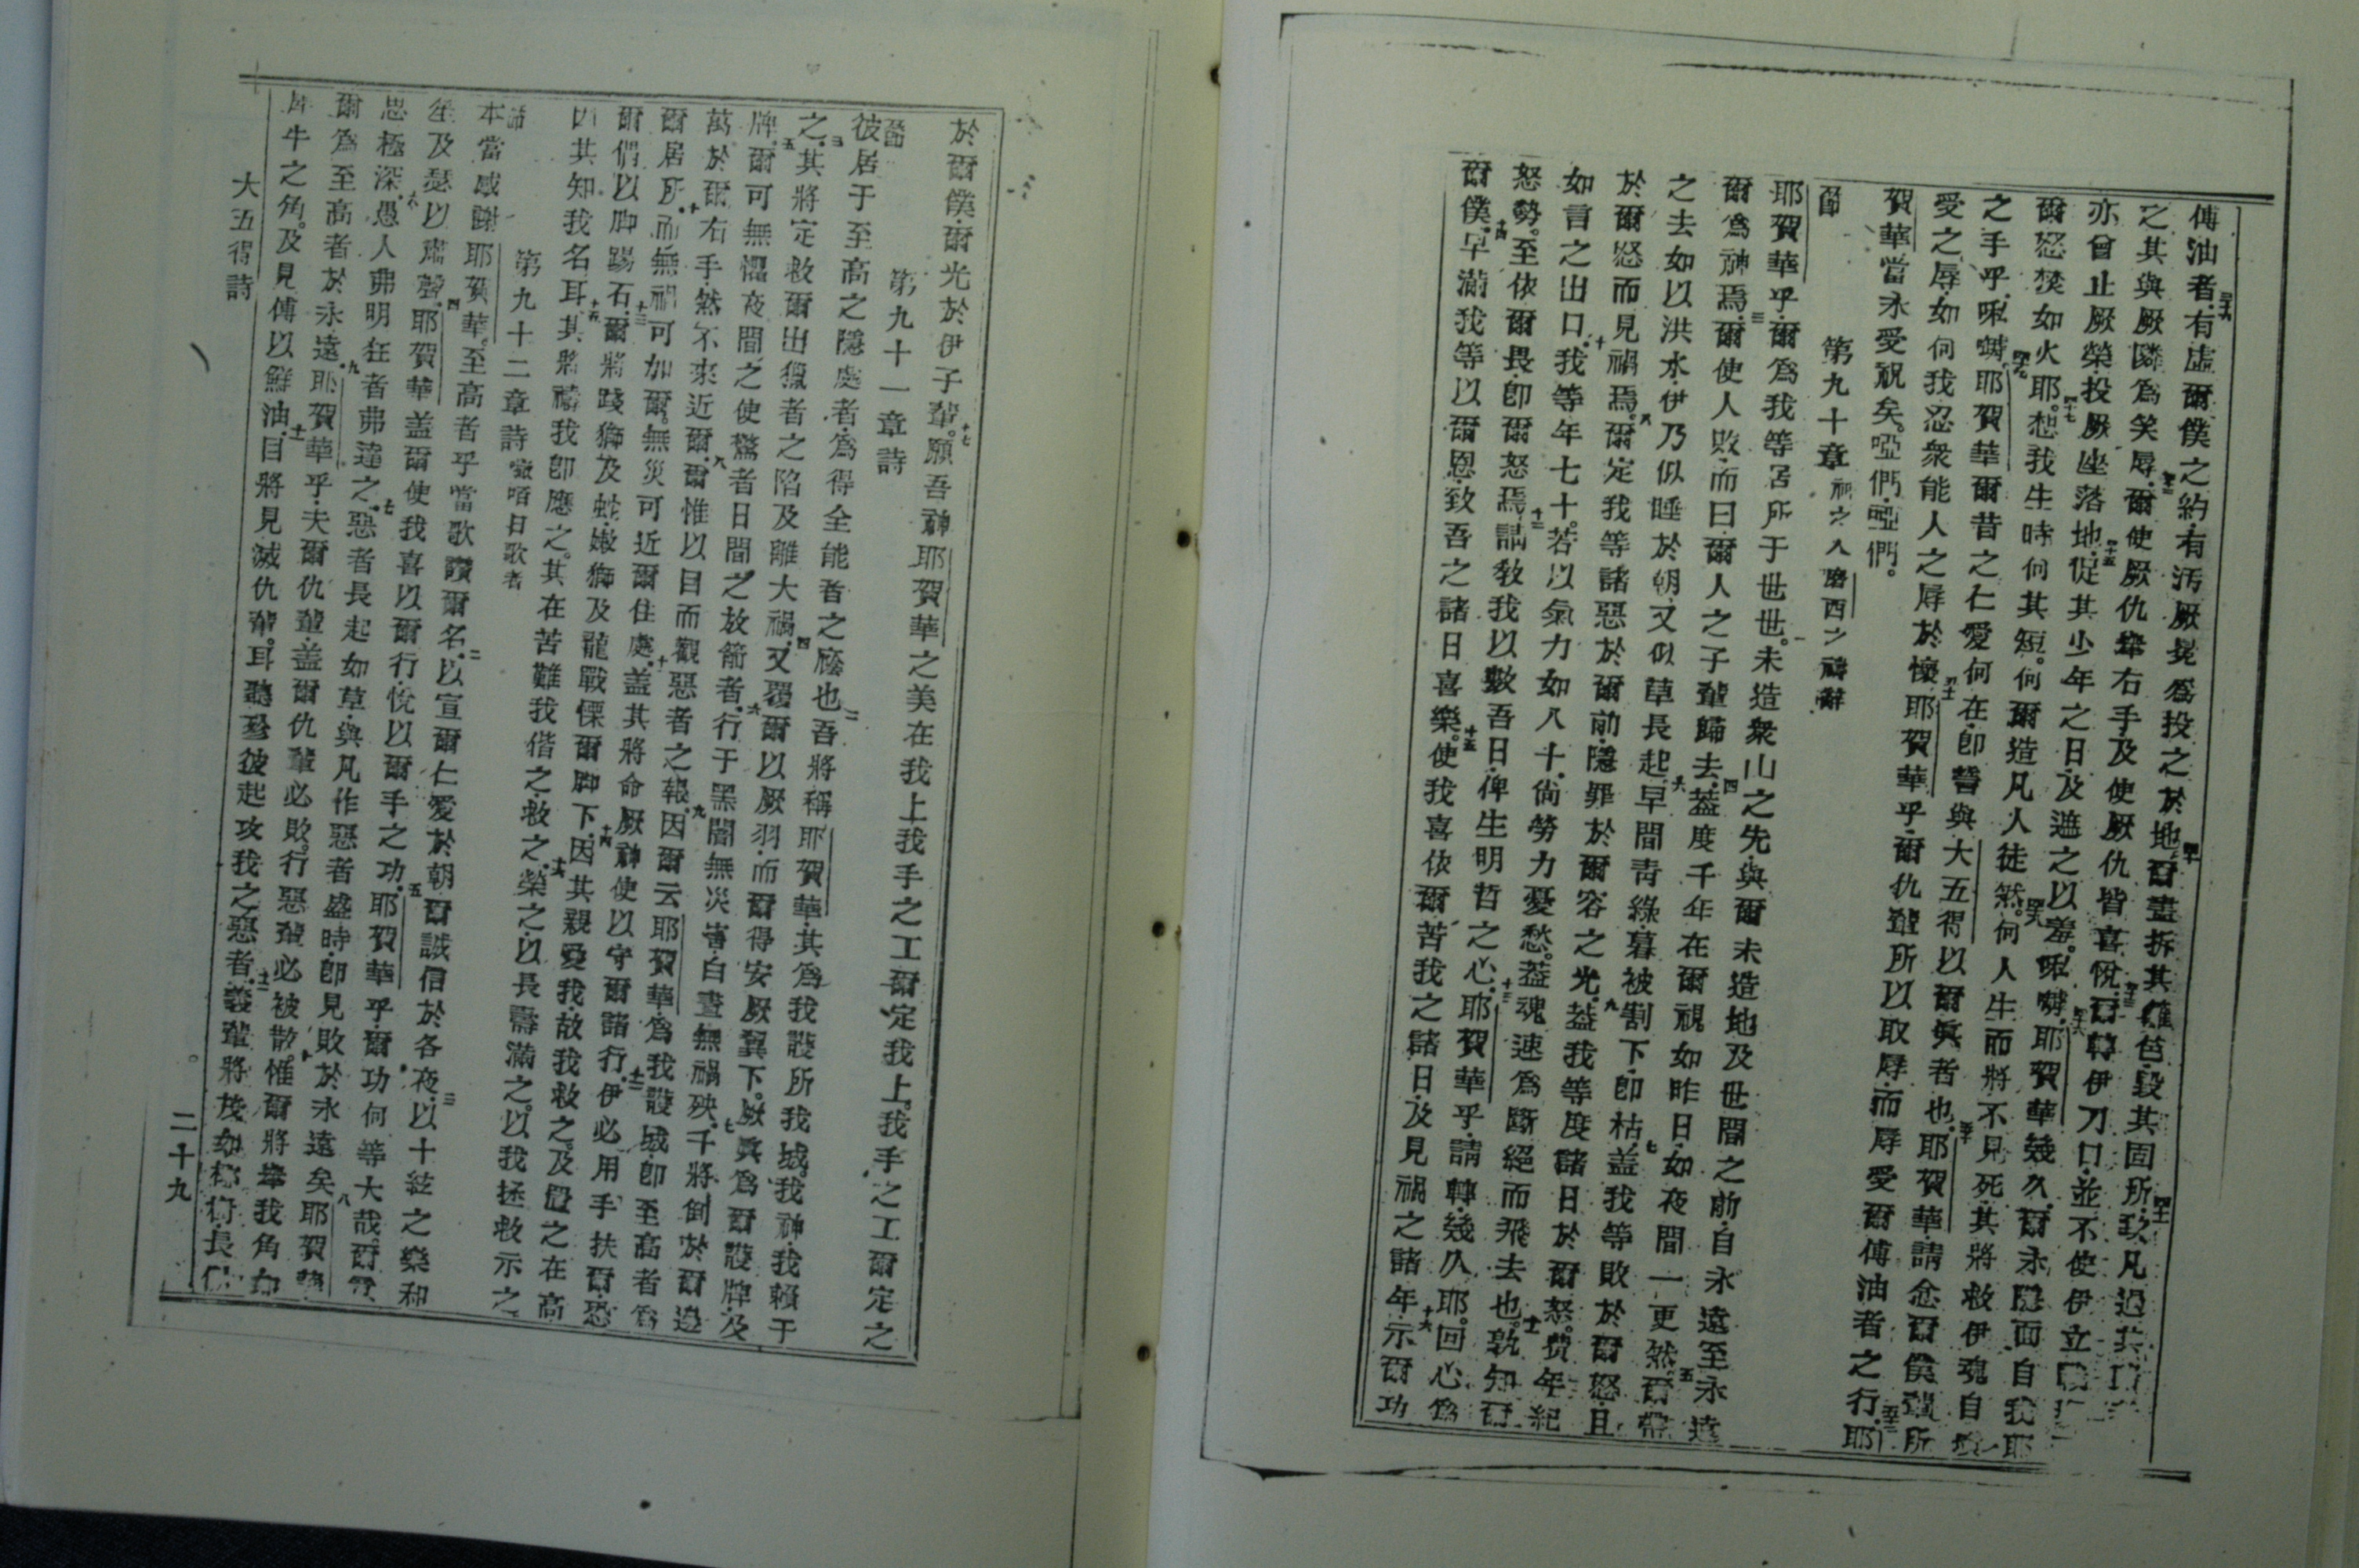 傅油者有虛爾僕之約有汚厥冕爲投之於地爾盡拆其籬芭毀其固所玖凡過其
之其與厥隣爲笑辱爾使厥仇輩右手及使厥仇皆喜悅爾轉伊刀口並不使伊立
亦曾止厥榮投厥座落地促其少年之日及遮之以羞
爾怒焚如火耶想我生時何其短何爾造凡人徒然何人生而將不見死其將救伊魂自
之手乎耶賀華爾昔之仁愛何在卽誓與大五得以爾眞者也耶賀華請念爾僕輩所
受之辱如何我忍衆能人之辱於懷耶賀華乎爾仇輩所以取辱而辱爾傅油者之行耶
賀華當永受祝矣啞們啞們
第九十章 神之人磨西之禱辭
節
耶賀華乎爾爲我等居所于世世未造衆山之先與爾未造地及世間之前自永遠至永遠
爾爲神焉爾使人敗而曰爾人之子輩歸去蓋度千年在爾視如昨日如夜間一更然爾帶
之去如以洪水伊乃似睡於朝又似草長起早間靑綠暮被割下卽枯蓋我等敗於爾怒且
於爾怒而見禍焉爾定我等諸惡於爾前隱罪於爾容之光蓋我等度諸日於爾怒費年紀
如言之出口我等年七十若以氣力如八十尙勞力憂愁蓋魂速爲斷絕而飛去也孰知爾
怒勢至依爾畏卽爾怒焉請敎我以數吾日俾生明哲之心耶賀華乎請轉幾久耶回心爲
爾僕早滿我等以爾恩致吾之諸日喜樂使我喜依爾苦我之諸日及見禍之諸年示爾功
於爾僕爾光於伊子輩願吾神耶賀華之美在我上我手之工爾定我上我手之工爾定之
第九十一章詩
節
彼居于至高之隱處者爲得全能者之廕也吾將稱耶賀華其爲我護所我城我神我賴于
之其將定救爾出獵者之陷及離大禍又覆爾以厥羽而爾得安厥翼下厥眞爲爾護牌及
牌爾可無懼夜間之使驚者日間之放箭者行于黑闇無災害白晝無禍殃千將倒於爾邊
萬於爾右手然不來近爾爾惟以目而觀惡者之報因爾云耶賀華爲我護城卽至高者爲
爾居所而無禍可加爾無災可近爾住處蓋其將命厥神使以守爾諸行伊必用手扶爾恐
爾們以脚踢石爾將踐獅及蛇嫩獅及龍戰慄爾脚下因其親愛我故我救之及置之在高
以其知我名耳其將禱我卽應之其在苦難我偕之救之榮之以長壽滿之以我拯救示之
第九十二章詩 嗽咟日歌者
節
本當感謝耶賀華至高者乎當歌讚爾名以宣爾仁愛於朝爾誠信於各夜以十絃之樂和
笙及瑟以肅聲耶賀華蓋爾使我喜以爾行悅以爾手之功耶賀華乎爾功何等大哉爾
思極深愚人弗明狂者弗達之惡者長起如草與凡作惡者盛時卽見敗於永遠矣耶賀華
爾爲至高者於永遠耶賀華乎夫爾仇輩蓋爾仇輩必敗行惡輩必被散惟爾將舉我角如
犀牛之角及見傅以鮮油目將見滅仇輩耳聽彼起攻我之惡者義輩將茂如長
大五得詩
二十九